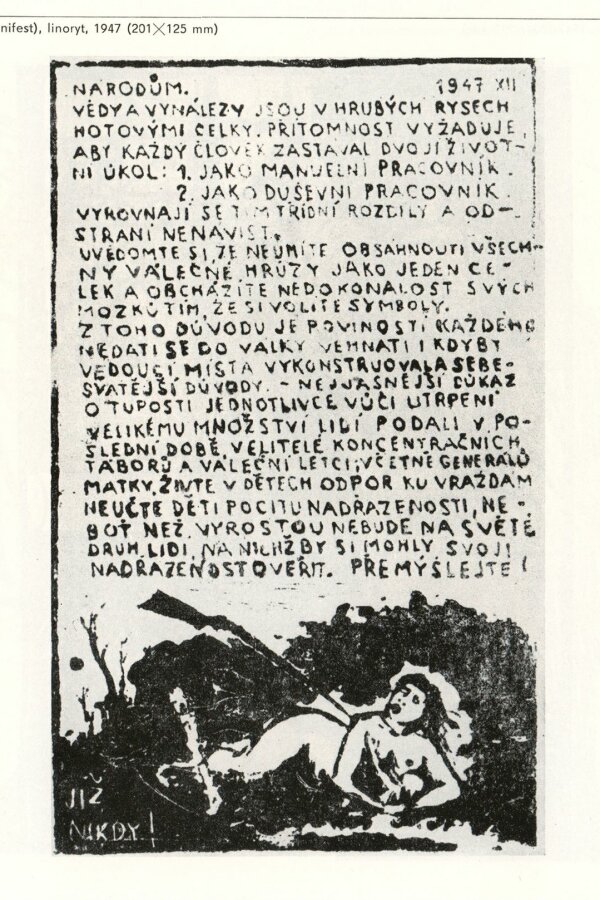 nifest), linoryt, 1947 (201×125 mm)
NÁRODŮM. 1947 XII
VĚDY A VYNÁLEZY JSOU V HRUBÝCH RYSECH
HOTOVÝMI CELKY. PŘÍTOMNOST VYŽADUJE,
ABY KAŽDÝ ČLOVĚK ZASTÁVAL DVOJÍ ŽIVOT-
NÍ ÚKOL: 1. JAKO MANUELNÍ PRACOVNÍK.
2. JAKO DUŠEVNÍ PRACOVNÍK.
VYROVNAJÍ SE TÍM TŘÍDNÍ ROZDÍLY A OD-
STRANÍ NENÁVIST.
UVĚDOMTE SI, ŽE NEUMÍTE OBSÁHNOUTI VŠECH-
NY VÁLEČNÉ HRŮZY JAKO JEDEN CE-
LEK A OBCHÁZÍTE NEDOKONALOST SVÝCH
MOZKŮ TÍM, ŽE SI VOLÍTE SYMBOLY.
Z TOHO DŮVODU JE POVINOSTÍ KAŽDÉHO
NEDATI SE DO VÁLKY VEHNATI I KDYBY
VEDOUCÍ MÍSTA VYKONSTRUOVALA SEBE-
SVATĚJŠÍ DŮVODY. - NEJJASNĚJŠÍ DŮKAZ
O TUPOSTI JEDNOTLIVCE VŮČI UTRPENÍ
VELIKÉMU MNOŽSTVÍ LIDÍ PODALI V PO-
SLEDNÍ DOBĚ, VELITELÉ KONCENTRAČNÍCH
TÁBORŮ A VÁLEČNÍ LETCI, VČETNĚ GENERÁLŮ
MATKY, ŽIVTE V DĚTECH ODPOR KU VRAŽDÁM
NEUČTE DĚTI POCITU NADŘAZENOSTI, NE-
BOŤ NEŽ VYROSTOU NEBUDE NA SVĚTĚ
DRUH LIDÍ, NA NICHŽ BY SI MOHLY SVOJI
NADŘAZENOST OVĚŘIT. PŘEMÝŠLEJTE!
JIŽ
NIKDY!